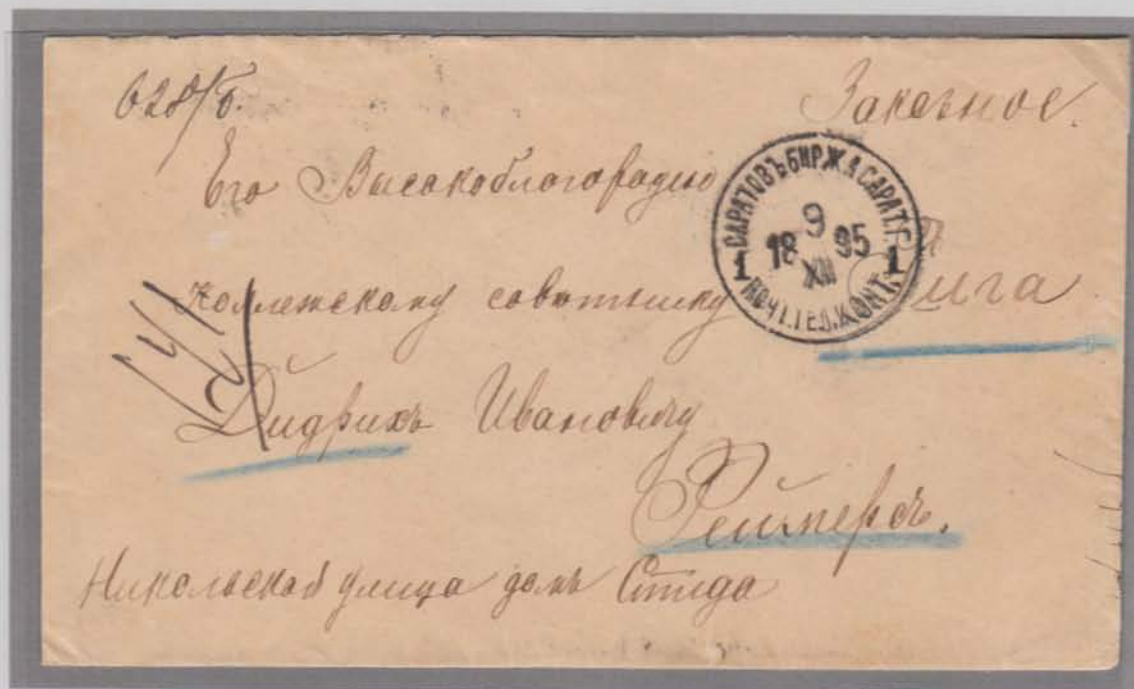 Заказное.
Его Высокоблагородію
САРАТОВЪ БИРЖА САРАТ. Г.
9
18 95
XII
1 1
ПОЧТ. ТЕЛ. КОНТ.
Коллежскому совѣтнику
Рига
Дидрихъ Ивановичу
Реймерсъ.
Никольская улица домъ